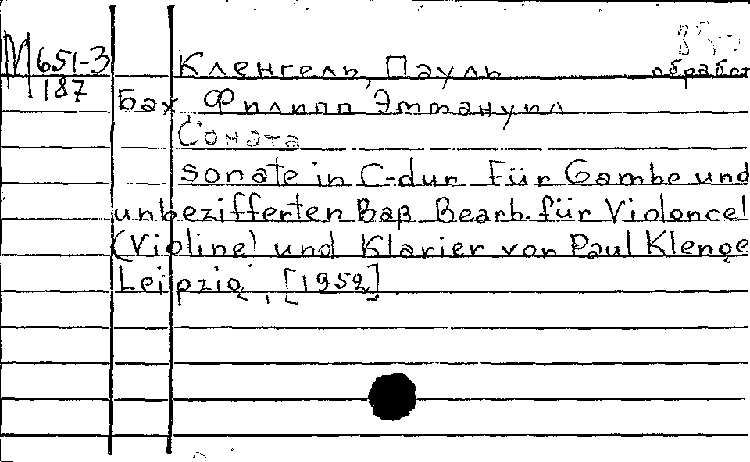 М 651-3
187
Кленгель, Пауль обработ
Бах, Филипп Эммануил
Соната
Sonate in C-dur Für Gambe und
unbezifferten Baß. Bearb. für Violoncel
(Violine) und Klavier von Paul Klenge
Leipzig, [1952]